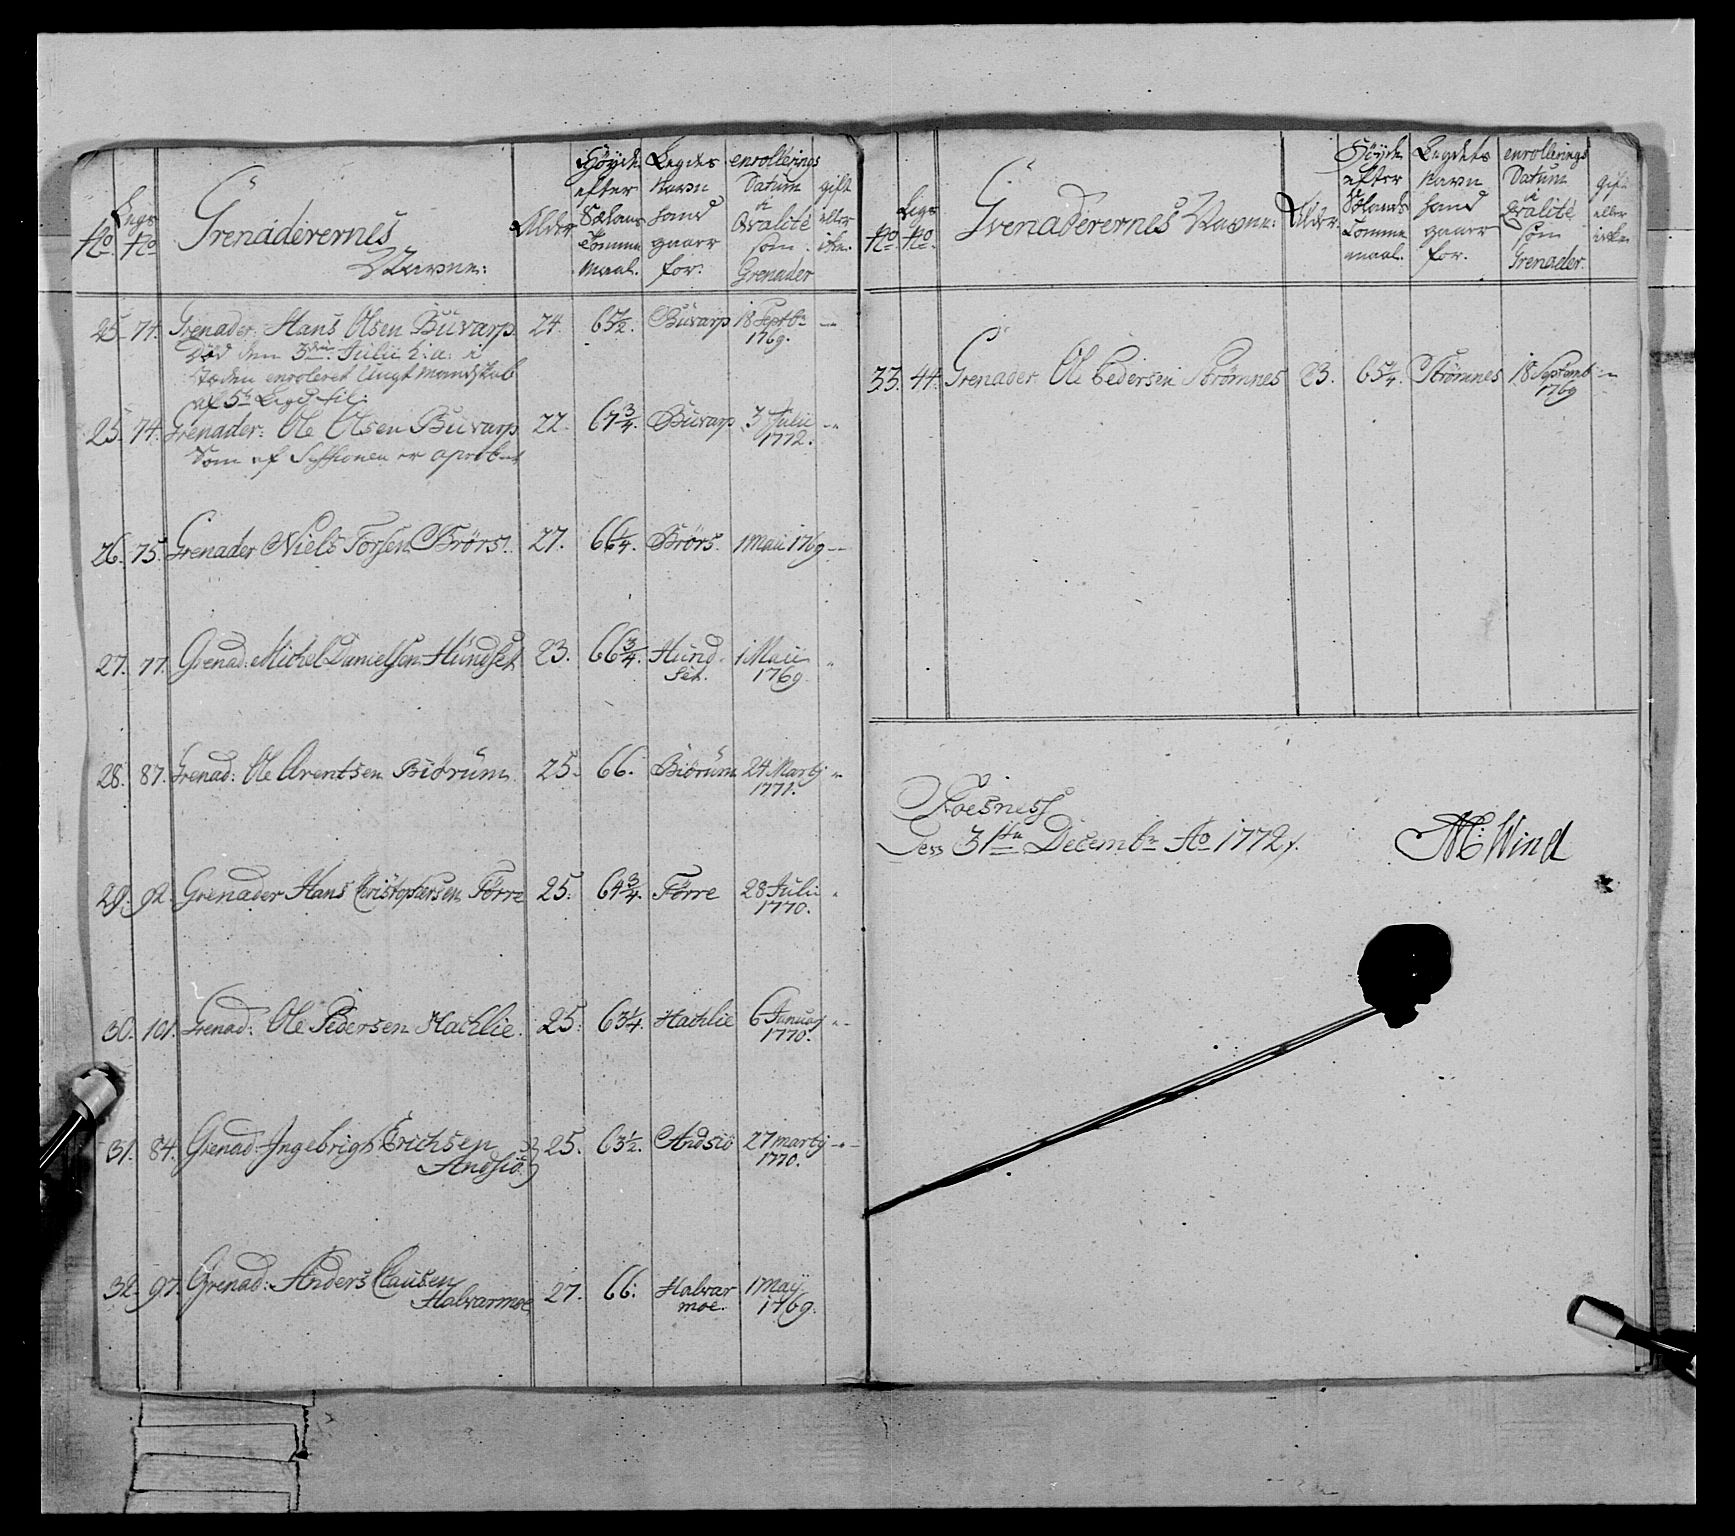 No. Legs No. Grenaderernes Navne: Alder Høyde efter Sælans Tomme Maal. Legdes Navn hand gaaer for. enrollerings Datum à Qvalité som Grenader gift eller ikke.
25. 74. Grenader: Hans Olsen Buvarp 24. 65 1/2. Buvarp 18 Septbr 1769. —
Død den 3die Julii h: a: i
stæden enroleret Ungt Mandskab
af 5te Legd til:
25. 74. Grenader: Ole Olsen Buvarp 22. 67 3/4. Buvarp 3 Julii 1772. —
Som af Sessionen er aprobert
26. 75. Grenader Niels Torsen Brørs. 27. 66 1/4. Brørs. 1 Maii 1769 —
27. 77. Grenad: Michel Danielsen Hundset 23. 66 3/4. Hundset. 1 Maii 1769.
28. 87. Grenad: Ole Arentsen Biørum 25. 66. Biørum 24 Martj 1771.
29. 92. Grenader Hans Christophersen Førre 25. 64 3/4. Førre 28 Juli 1770.
30. 101. Grenad: Ole Pedersen Hachlie. 25. 63 1/4. Hachlie 6 Januarj 1770.
31. 84. Grenad: Ingebrigt Erichsen Andsiø 25. 63 1/2. Andsiø 27 martj 1770.
32. 97. Grenad: Anders Clausen Halvarmoe 27. 66. Halvarmoe. 1 Maij 1769.
No. Legs No. Grenaderernes Navne: Alder. Høyde efter Sælands Tomme maal. Legdets Navn hand gaaer for. enrollerings Datum à Qvalité som Grenader. gift eller icke
33. 44. Grenader Ole Pedersen Strømnes 23. 65 1/4. Strømnes 18 Septemb 1769
Foesness
Den 31te Decembr Ao 1772.
M: Wind